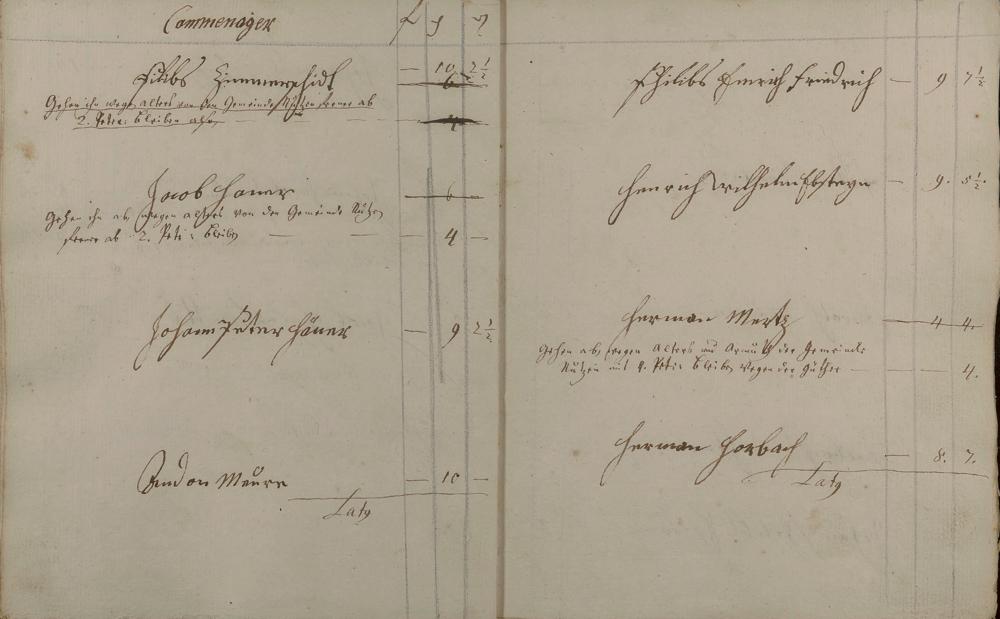 Commenager
Filibs Zimmerschidt — 10 2 1/2
6
Gehen ihn wegen alters von den Gemeinde Nutzen ab
2. Peter: bleiben — — — 4
Jacob Haner — 6 —
Gehen ihn ab wegen alters von den Gemeinde Nutzen
ab 2. Peti: bleiben — — — 4 —
Johann Peter Häner — 9 2 1/2
Andon Meurer — 10 —
Latg
Philibs Henrich Friedrich — 9 7 1/2
Henrich Wilhelm Ebsteyn — 9. 5 1/2.
Herman Mertz — 4 4.
Gehen ab wegen Alters und Armuth der Gemeinde
Nutzen mit 4. Peti: bleiben wegen der Güther — — — 4.
Herman Horbach — 8. 7.
Latg